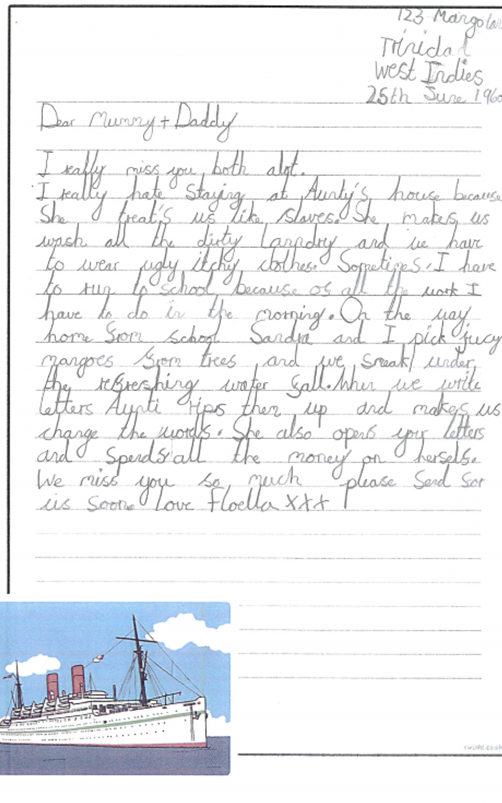 123 Mango
Trinidad
West Indies
25th June 196
Dear Mummy + Daddy
I really miss you both alot.
I really hate Staying at Aunty's house because
She treat's us like slaves. She makes us
wash all the dirty laundry and we have
to wear ugly itchy clothes. Sometimes, I have
to run to school because of all the work I
have to do in the morning. On the way
home from school Sandra and I pick jucy
mangoes from trees and we sneak under
the refreshing water fall. When we write
letters Aunti rips them up and makes us
change the words. She also opens your letters
and Spends all the money on herself.
We miss you so much please Send for
us Soon. love Floella xxx